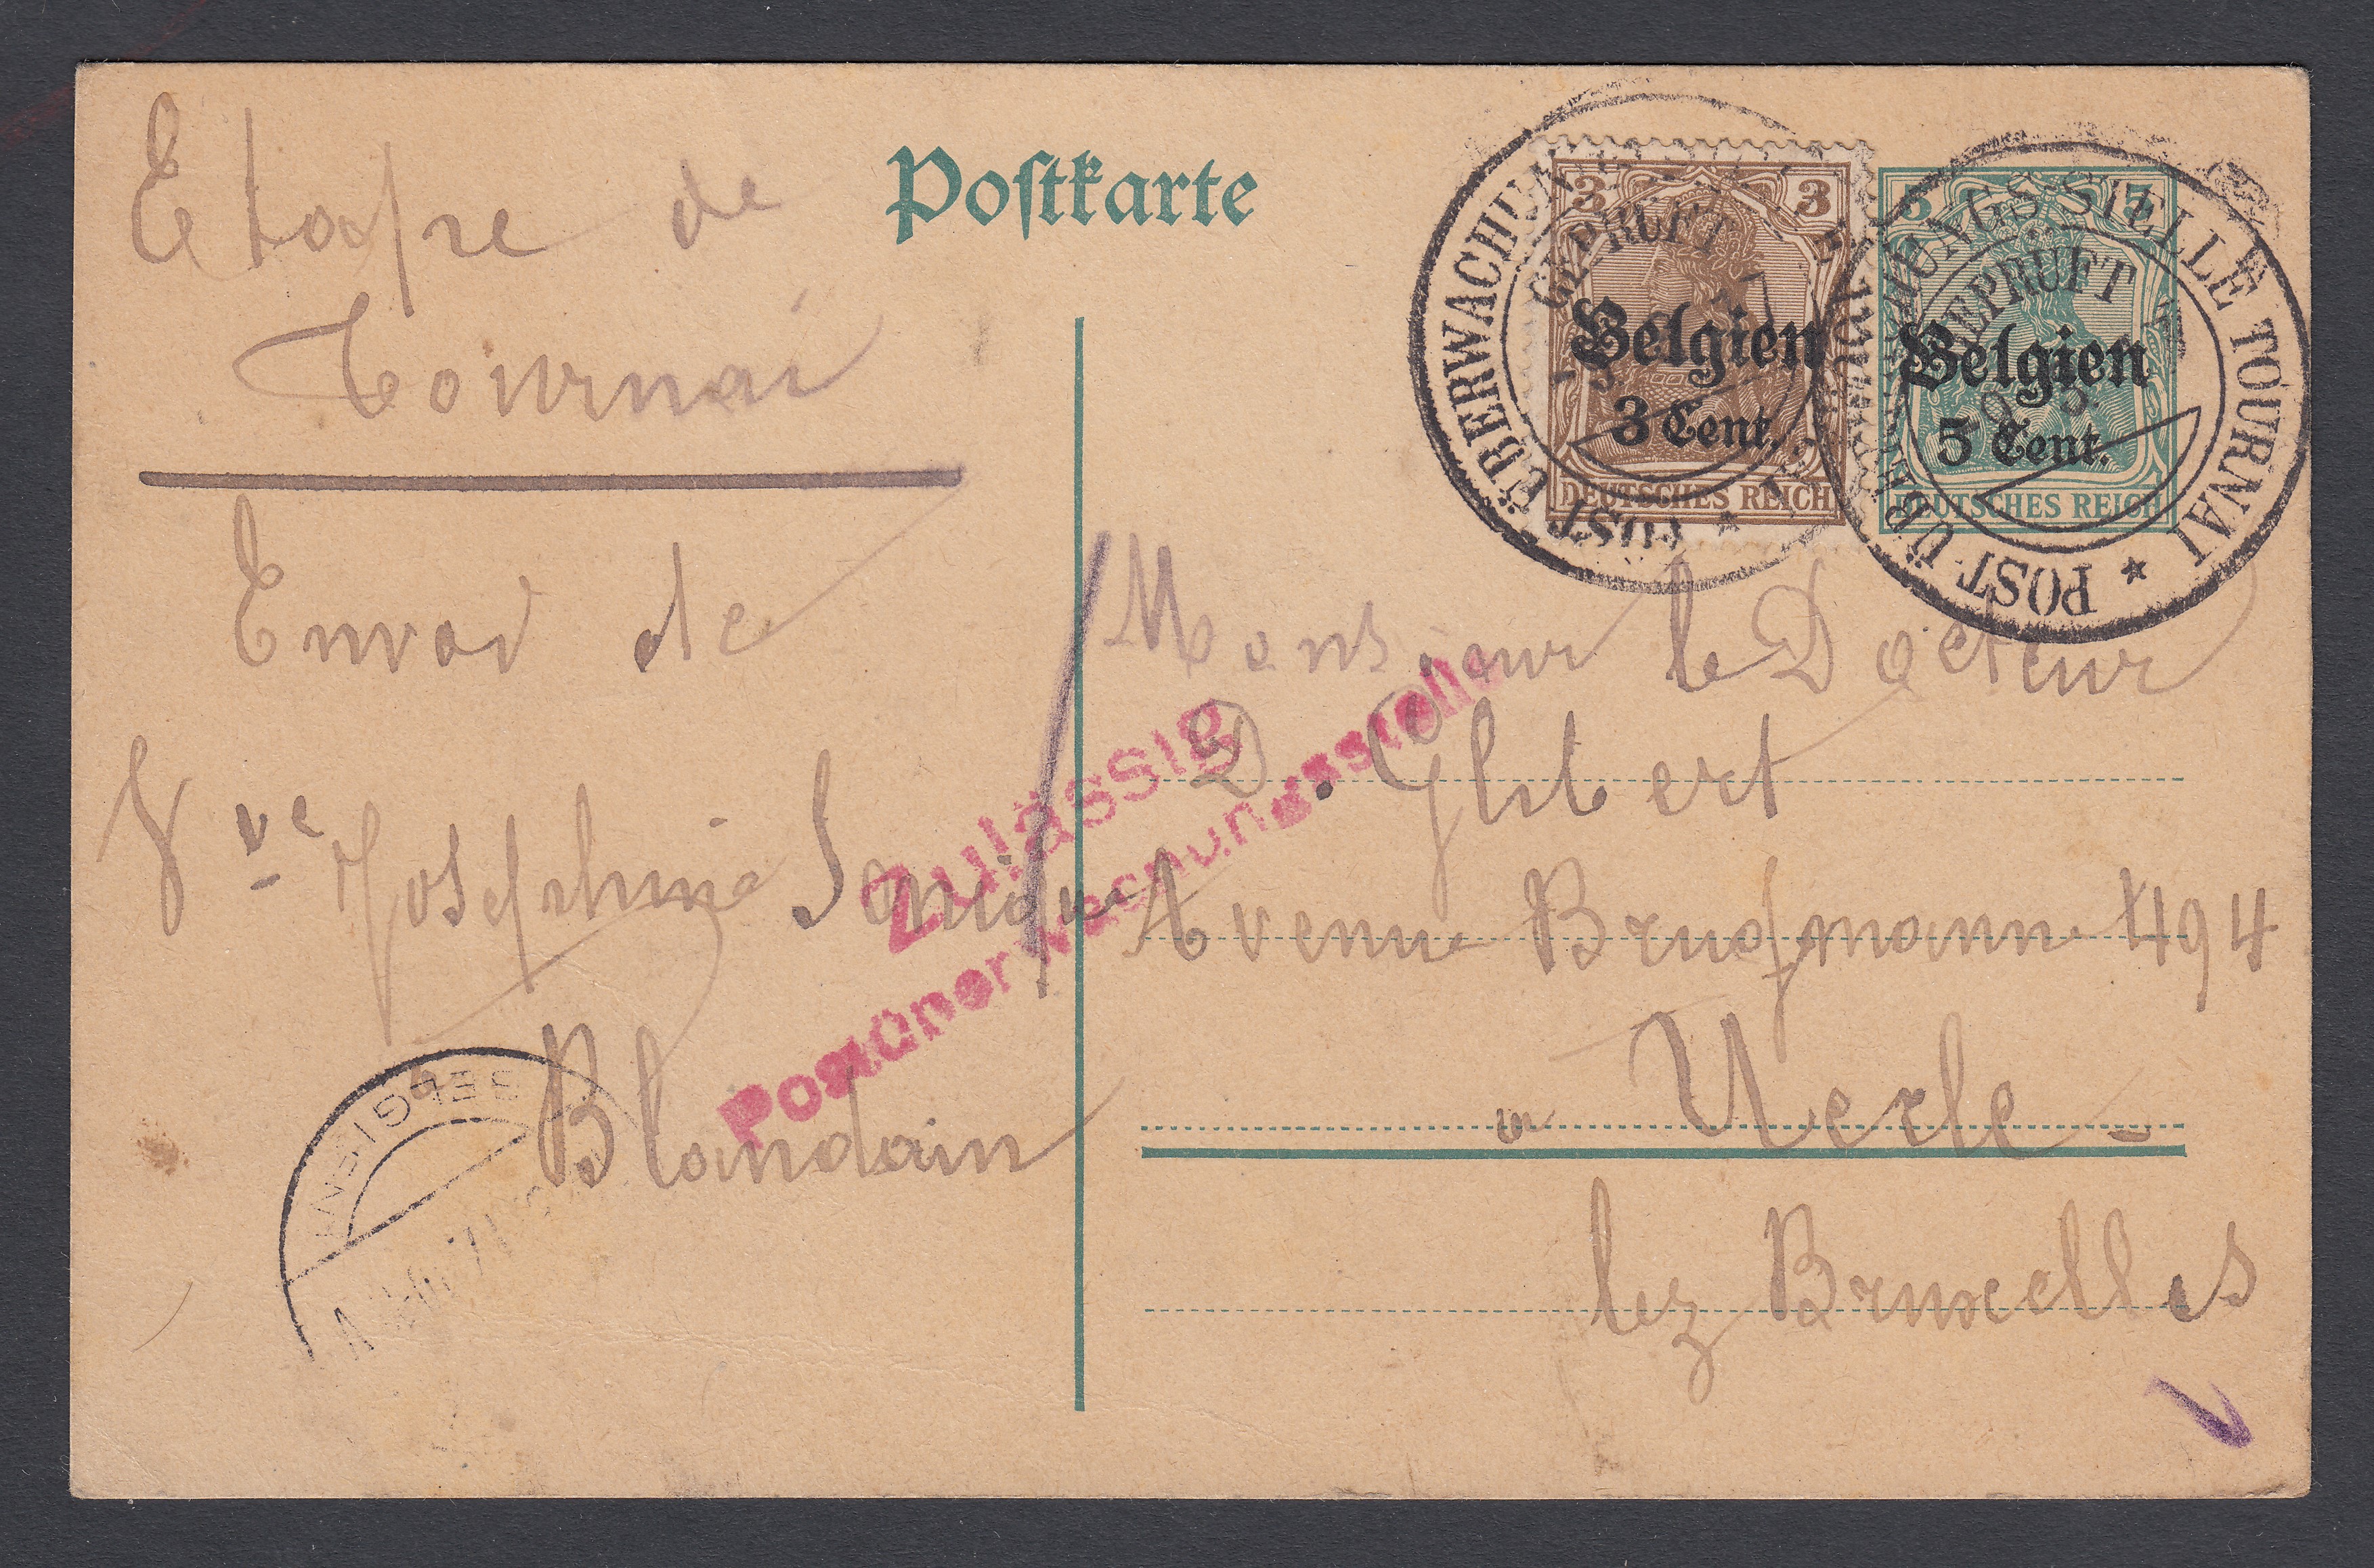 Etape de
Tournai
Envoi de
Vve Josephine
Blandain
Postkarte
3 3
Belgien
3 Cent.
DEUTSCHES REICH
5
Belgien
5 Cent.
DEUTSCHES REICH
POST ÜBERWACHUN
GEPRÜFT
POST-ÜBERWACHUNGS-STELLE TOURNAI ★
GEPRÜFT
Zulässig
Postüberwachungsstelle
Monsieur le Docteur
D. Glibert
Avenue Brugmann 494
a Uccle -
lez Bruxelles
BELGIEN